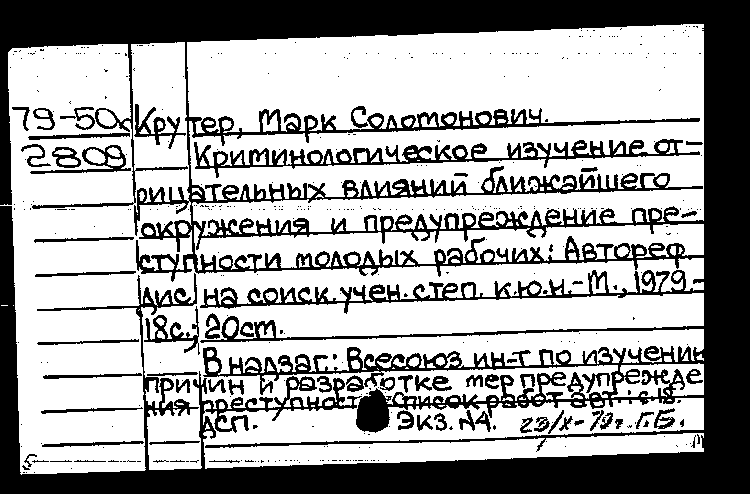 79-50с Крутер, Марк Соломонович.
2809 Криминологическое изучение от-
рицательных влияний ближайшего
окружения и предупреждение пре-
ступности молодых рабочих: Автореф.
дис на соиск. учен. степ. к.ю.н.-М., 1979.-
18с.; 20см.
В надзаг.: Всесоюз ин-т по изучении
причин и разработке мер предупрежде
ния преступност Список работ авт.: с.18.
ДСП. Экз. №4. 23/X-79г. Г.Б.
5